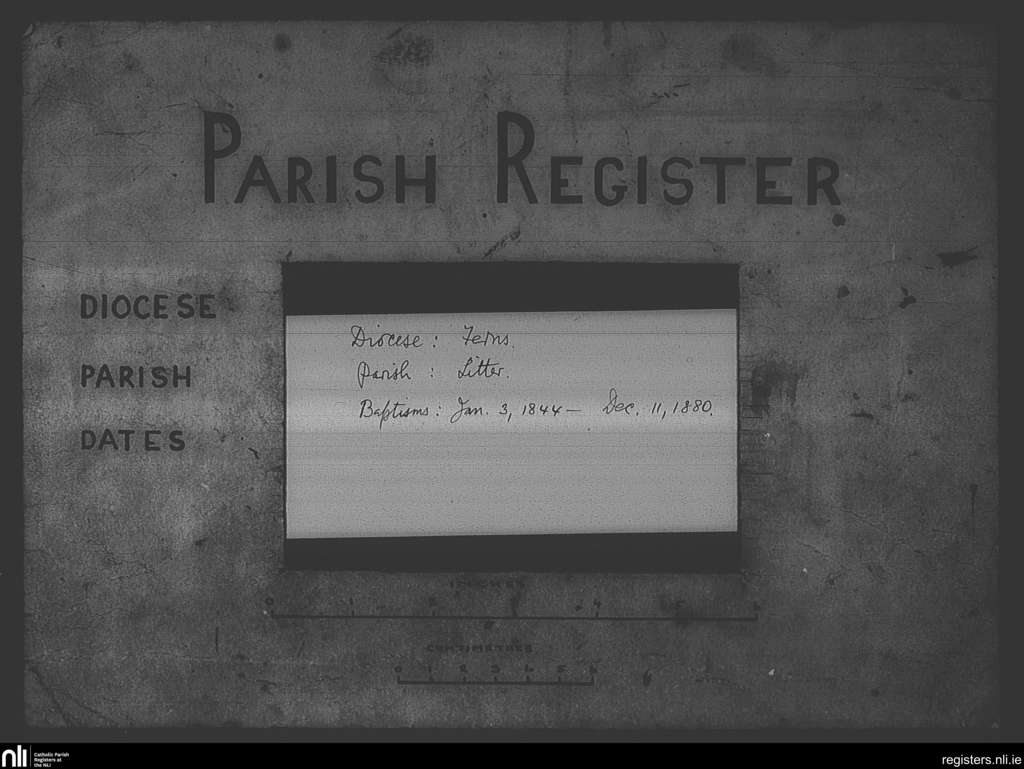 PARISH REGISTER
DIOCESE
PARISH
DATES
Diocese : Ferns.
Parish : Litter.
Baptisms : Jan. 3, 1844 — Dec. 11, 1880.
INCHES
0 1 2 3 4 5 6
CENTIMETRES
0 1 2 3 4 5 6
nli
Catholic Parish
Registers at
the NLI
registers.nli.ie